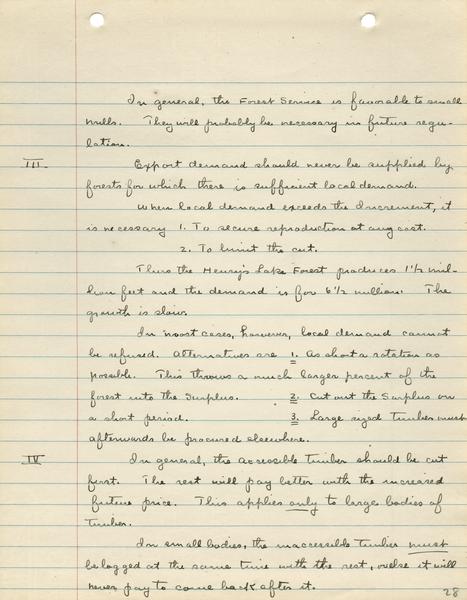 In general, the Forest Service is favorable to small
mills. They will probably be necessary in future regu-
lation.
III. Export demand should never be supplied by
forests for which there is sufficient local demand.
When local demand exceeds the Increment, it
is necessary 1. To secure reproduction at any cost.
2. To limit the cut.
Thus the Henry's Lake Forest produces 1 1/2 mil-
lion feet and the demand is for 6 1/2 million. The
growth is slow.
In most cases, however, local demand cannot
be refused. Alternatives are 1. As short a rotation as
possible. This throws a much larger percent of the
forest into the Surplus. 2. Cut out the Surplus in
a short period. 3. Large sized timber must
afterwards be procured elsewhere.
IV In general, the accessible timber should be cut
first. The rest will pay better with the increased
future price. This applies only to large bodies of
timber.
In small bodies, the inaccessible timber must
be logged at the same time with the rest, or else it will
never pay to come back after it.
28